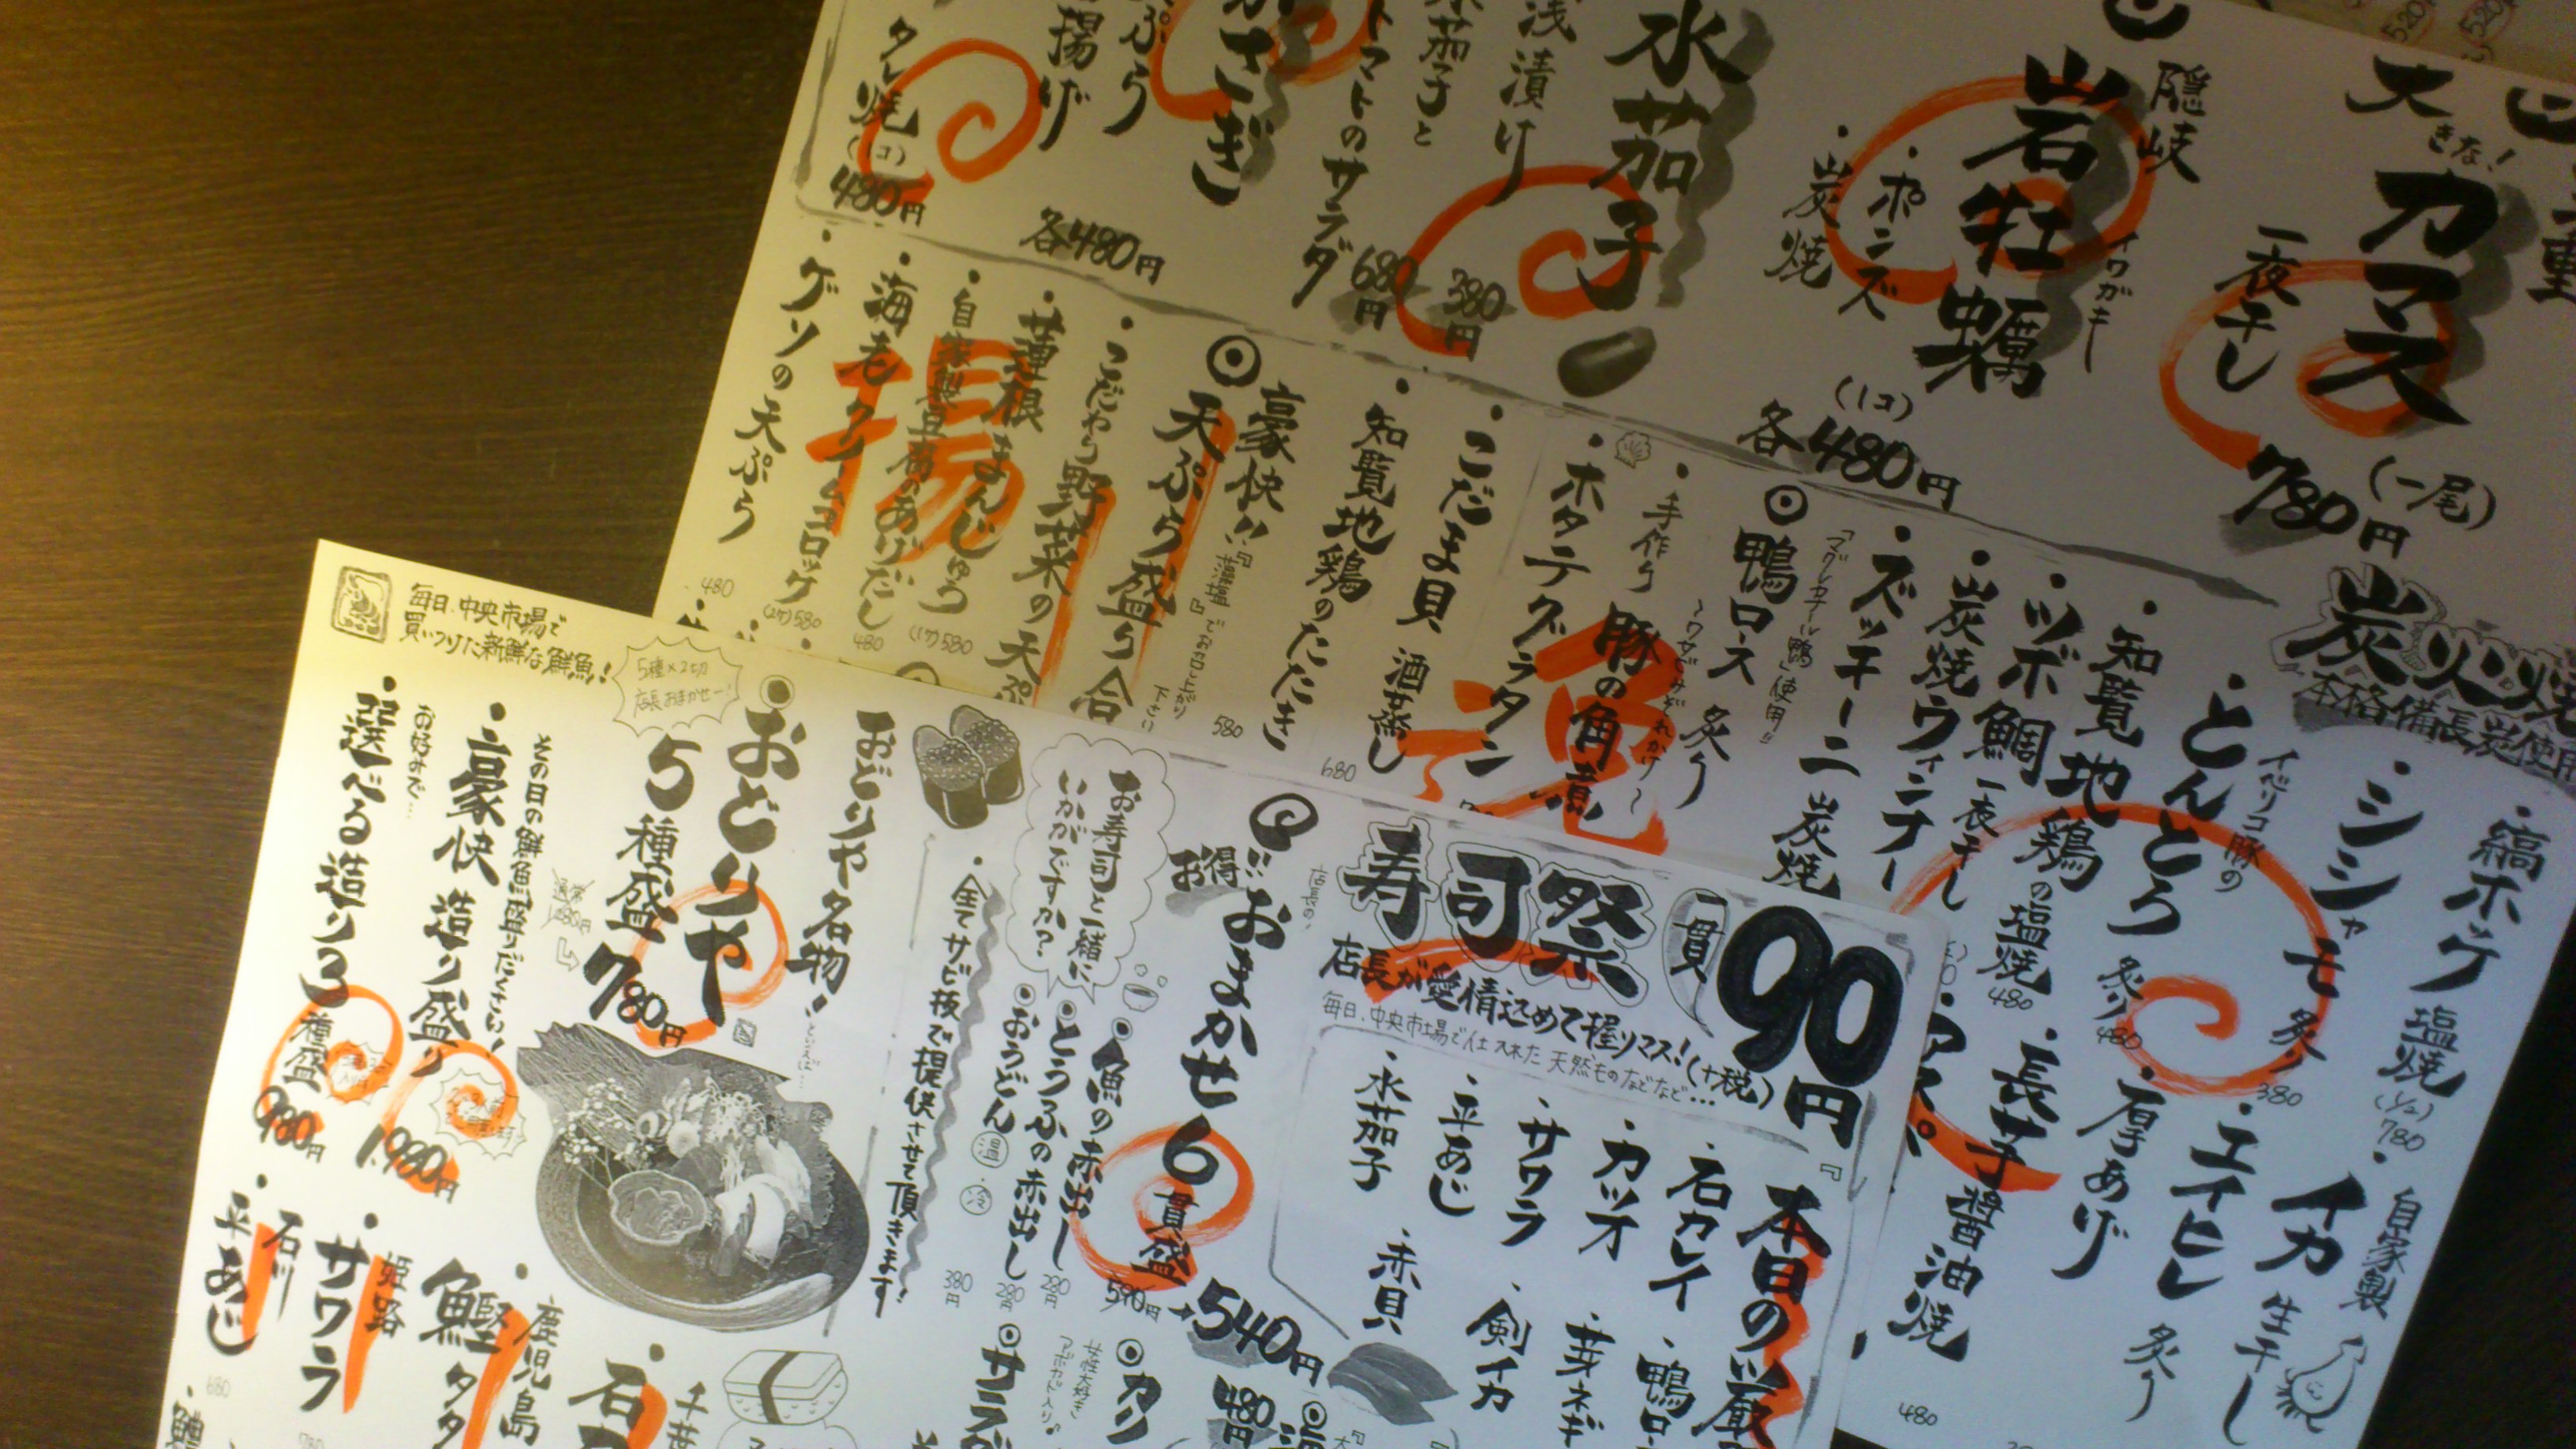 大きな!
カマス
一夜干し
(一尾)
780円
隠岐
岩牡蠣
イワガキ
・ポンズ
・炭焼
(1コ)
各480円
水茄子
浅漬け
380円
水茄子と
トマトのサラダ
680円
かさぎ
天ぷら
揚げ
各480円
タレ焼
(1コ)
480円
炭火焼
本格備長炭使用
・縞ホッケ 塩焼
(1/2)
780
・シシャモ 炙り
380
イベリコ豚の
・とんとろ 炙り
480
・知覧地鶏の塩焼
480
・ツボ鯛 一夜干し
・炭焼ウィンナー
・ズッキーニ 炭焼
・自家製
イカ 生干し
・エイヒレ 炙り
・厚あげ
・長芋 醤油焼
480
「マグレカナール鴨」使用!!
鴨ロース 炙り
〜ワサビみぞれかけ〜
・手作り 豚の角煮
・ホタテグラタン
・こだま貝 酒蒸し
・知覧地鶏のたたき
680
豪快!!
天ぷら盛り合
『藻塩』でお召し上がり下さい
580
・こだわり野菜の天ぷ
・蓮根まんじゅう
(1ケ)580
・自家製豆腐のあげだし
480
・海老クリームコロッケ
(2ケ)580
・ゲソの天ぷら
480
揚
寿司祭
一貫
90円
店長が愛情込めて握りマス!(+税)
毎日、中央市場で仕入れた 天然ものなどなど…
『本日の厳
・石カレイ
・カツオ
・サワラ
・平あじ
・水茄子
・鴨ロ
・芽ネギ
・剣イカ
・赤貝
店長の!
お得!!おまかせ6貫盛
590円
540円
480円
お寿司と一緒に
いかがですか?
魚の赤出し
280円
とうふの赤出し
280円
おうどん
温
冷
380円
・全てサビ抜で提供させて頂きます!
女性大好き
アボカド入り♪
カリ
サラダ
毎日、中央市場で
買いつけた新鮮な鮮魚!
おどりや名物!
といえば…
おどりや
5種盛
780円
5種×2切
店長おまかせ〜!
通常
1,280円
その日の鮮魚盛りだくさい!
・豪快 造り盛り
1,980円
お好みで…
・選べる造り3種盛
980円
千葉
・石
・鹿児島
鰹タタ
姫路
・サワラ
石川
・平あじ
680
780